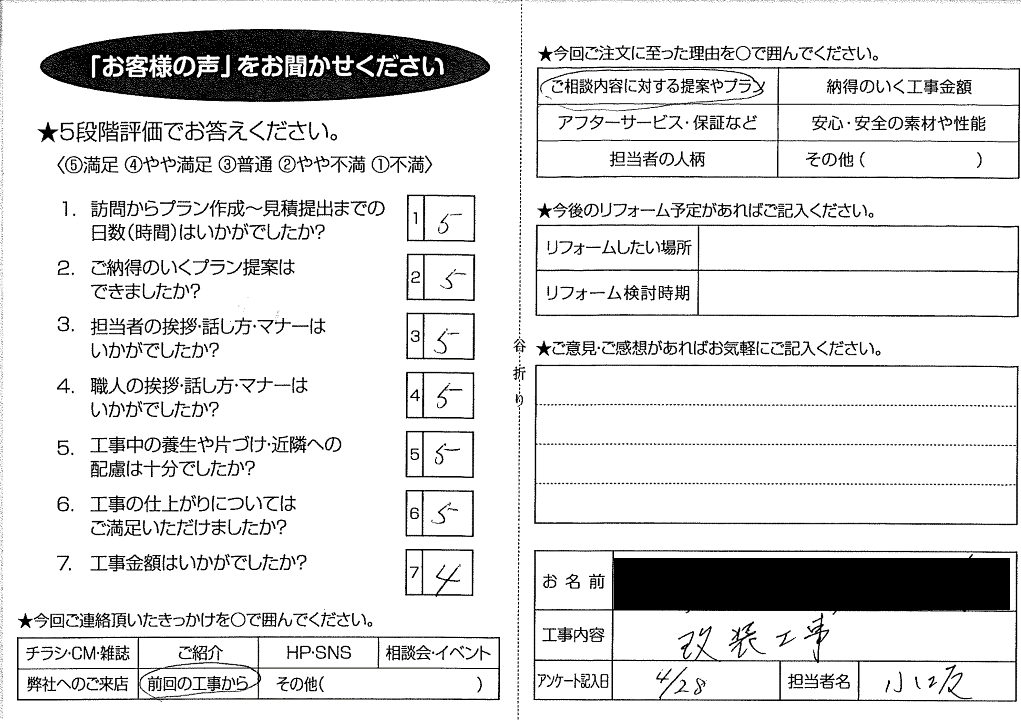 「お客様の声」をお聞かせください
★5段階評価でお答えください。
〈⑤満足 ④やや満足 ③普通 ②やや不満 ①不満〉
1. 訪問からプラン作成～見積提出までの
日数(時間)はいかがでしたか?
1 5
2. ご納得のいくプラン提案は
できましたか?
2 5
3. 担当者の挨拶・話し方・マナーは
いかがでしたか?
3 5
4. 職人の挨拶・話し方・マナーは
いかがでしたか?
4 5
5. 工事中の養生や片づけ・近隣への
配慮は十分でしたか?
5 5
6. 工事の仕上がりについては
ご満足いただけましたか?
6 5
7. 工事金額はいかがでしたか?
7 4
★今回ご連絡頂いたきっかけを○で囲んでください。
チラシ・CM・雑誌 ご紹介 HP・SNS 相談会・イベント
弊社へのご来店 前回の工事から その他( )
谷折り
★今回ご注文に至った理由を○で囲んでください。
ご相談内容に対する提案やプラン 納得のいく工事金額
アフターサービス・保証など 安心・安全の素材や性能
担当者の人柄 その他( )
★今後のリフォーム予定があればご記入ください。
リフォームしたい場所
リフォーム検討時期
★ご意見・ご感想があればお気軽にご記入ください。
お名前
工事内容 改装工事
アンケート記入日 4/28 担当者名 小口反